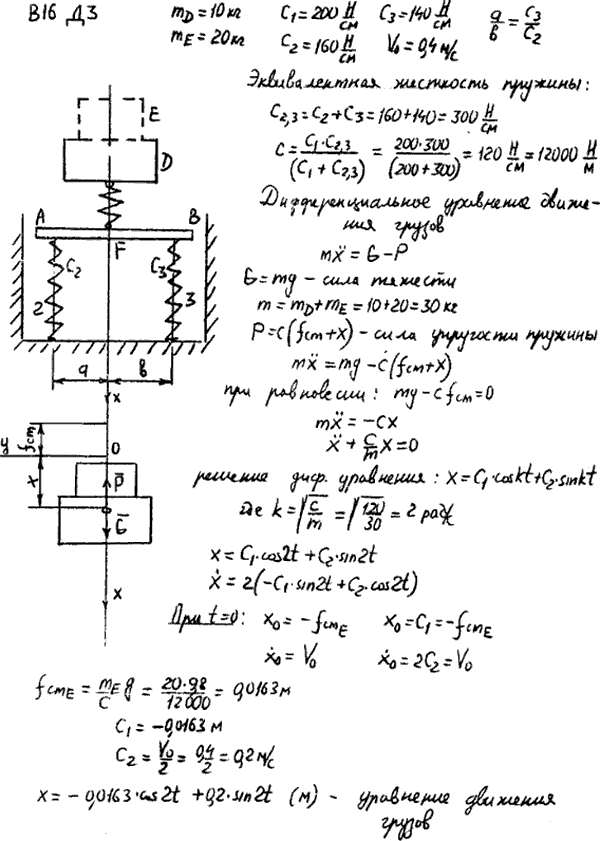 В16 Д3
m_D = 10 кг C₁ = 200 Н/см C₃ = 140 Н/см a/в = C₃/C₂
m_E = 20 кг C₂ = 160 Н/см V₀ = 0,4 м/с
Эквивалентная жесткость пружины:
C₂,₃ = C₂ + C₃ = 160 + 140 = 300 Н/см
C = C₁·C₂,₃/(C₁ + C₂,₃) = 200·300/(200+300) = 120 Н/см = 12000 Н/м
Дифференциальное уравнение движе-
ния грузов
mẍ = G - P
G = mg - сила тяжести
m = m_D + m_E = 10 + 20 = 30 кг
P = c(fст + x) - сила упругости пружины
mẍ = mg - c(fст + x)
при равновесии: mg - c fст = 0
mẍ = -cx
ẍ + c/m x = 0
решение диф. уравнения: x = C₁·cos kt + C₂·sin kt
где k = √(c/m) = √(120/30) = 2 рад/с
x = C₁·cos2t + C₂·sin2t
ẋ = 2(-C₁·sin2t + C₂·cos2t)
При t=0: x₀ = -fстE x₀ = C₁ = -fстE
ẋ₀ = V₀ ẋ₀ = 2C₂ = V₀
E
D
A B
F
C₂ C₃
2 3
a в
x
fст
y O
x
P̄
Ḡ
x
fстE = m_E/C g = 20·9,8/12000 = 0,0163 м
C₁ = -0,0163 м
C₂ = V₀/2 = 0,4/2 = 0,2 м/с
x = -0,0163·cos2t + 0,2·sin2t (м) - уравнение движения
грузов